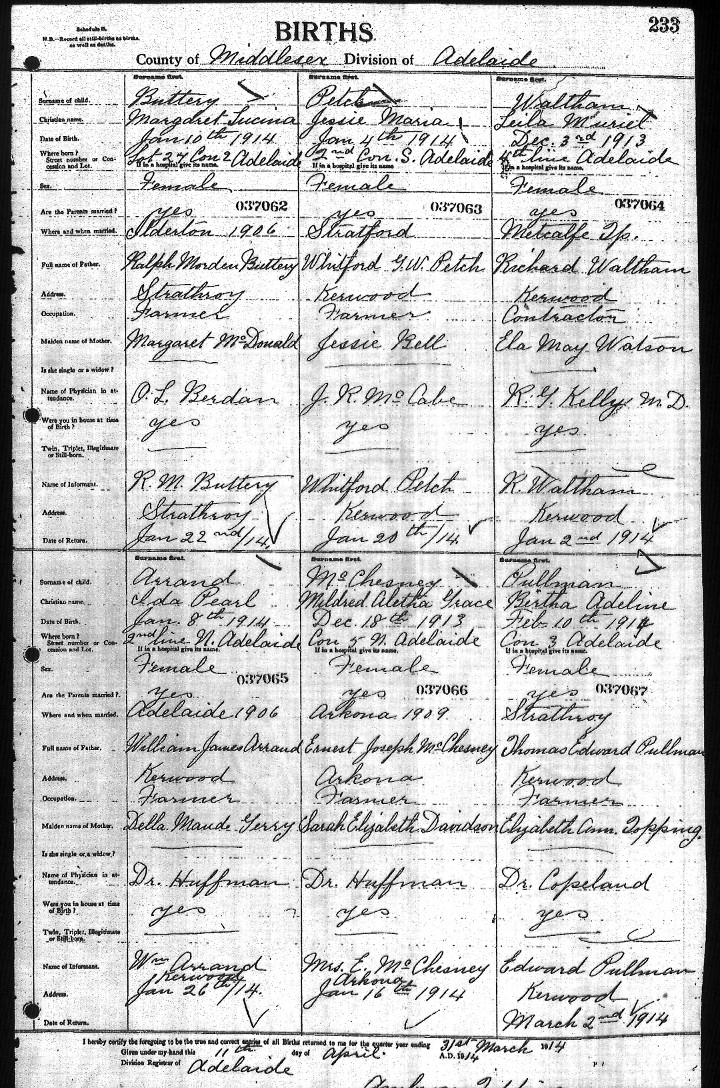 Schedule B.
N.B.—Record all still-births as births, as well as deaths.
BIRTHS
233
County of Middlesex Division of Adelaide
Surname first. Surname first. Surname first.
Surname of child. Buttery Petch Waltham
Christian name. Margaret Lucina Jessie Maria Leila Muriel
Date of Birth. Jan 10th 1914 Jan 4th 1914 Dec. 3rd 1913
Where born? Street number or Concession and Lot. Lot 27 Con 2 Adelaide 2nd Con. S. Adelaide 4th line Adelaide
If in a hospital give its name. If in a hospital give its name.
Sex. Female Female Female
037062 037063 037064
Are the Parents married? yes yes yes
Where and when married. Ilderton 1906 Stratford Metcalfe Tp.
Full name of Father. Ralph Morden Buttery Whitford G.W. Petch Richard Waltham
Address. Strathroy Kerwood Kerwood
Occupation. Farmer Farmer Contractor
Maiden name of Mother. Margaret McDonald Jessie Bell Ela May Watson
Is she single or a widow?
Name of Physician in attendance. O. L. Berdan J. R. McCabe R. G. Kelly M.D.
Were you in house at time of Birth? yes yes yes
Twin, Triplet, Illegitimate or Still-born.
Name of Informant. R. M. Buttery Whitford Petch R. Waltham
Address. Strathroy Kerwood Kerwood
Date of Return. Jan 22nd/14 Jan 20th/14 Jan 2nd 1914
Surname first. Surname first. Surname first.
Surname of child. Arrand McChesney Pullman
Christian name. Ida Pearl Mildred Aletha Grace Bertha Adeline
Date of Birth. Jan. 8th 1914 Dec. 18th 1913 Feb 10th 1914
Where born? Street number or Concession and Lot. 2nd line N. Adelaide Con 5 N. Adelaide Con 3 Adelaide
If in a hospital give its name. If in a hospital give its name. If in a hospital give its name.
Sex. Female Female Female
037065 037066 037067
Are the Parents married? Yes yes yes
Where and when married. Adelaide 1906 Arkona 1909. Strathroy
Full name of Father. William James Arrand Ernest Joseph McChesney Thomas Edward Pullman
Address. Kerwood Arkona Kerwood
Occupation. Farmer Farmer Farmer
Maiden name of Mother. Della Maude Gerry Sarah Elizabeth Davidson Elizabeth Ann Topping.
Is she single or, a widow?
Name of Physician in attendance. Dr. Huffman Dr. Huffman Dr. Copeland
Were you in house at time of Birth? yes yes yes
Twin, Triplet, Illegitimate or Still-born.
Name of Informant. Wm Arrand Mrs. E. McChesney Edward Pullman
Address. Kerwood Arkona Kerwood
Date of Return. Jan 26th/14. Jan 16th 1914 March 2nd 1914
I hereby certify the foregoing to be the true and correct entries of all Births returned to me for the quarter year ending 31st March 1914
Given under my hand this 11th day of April. A.D. 1914
Division Registrar of Adelaide